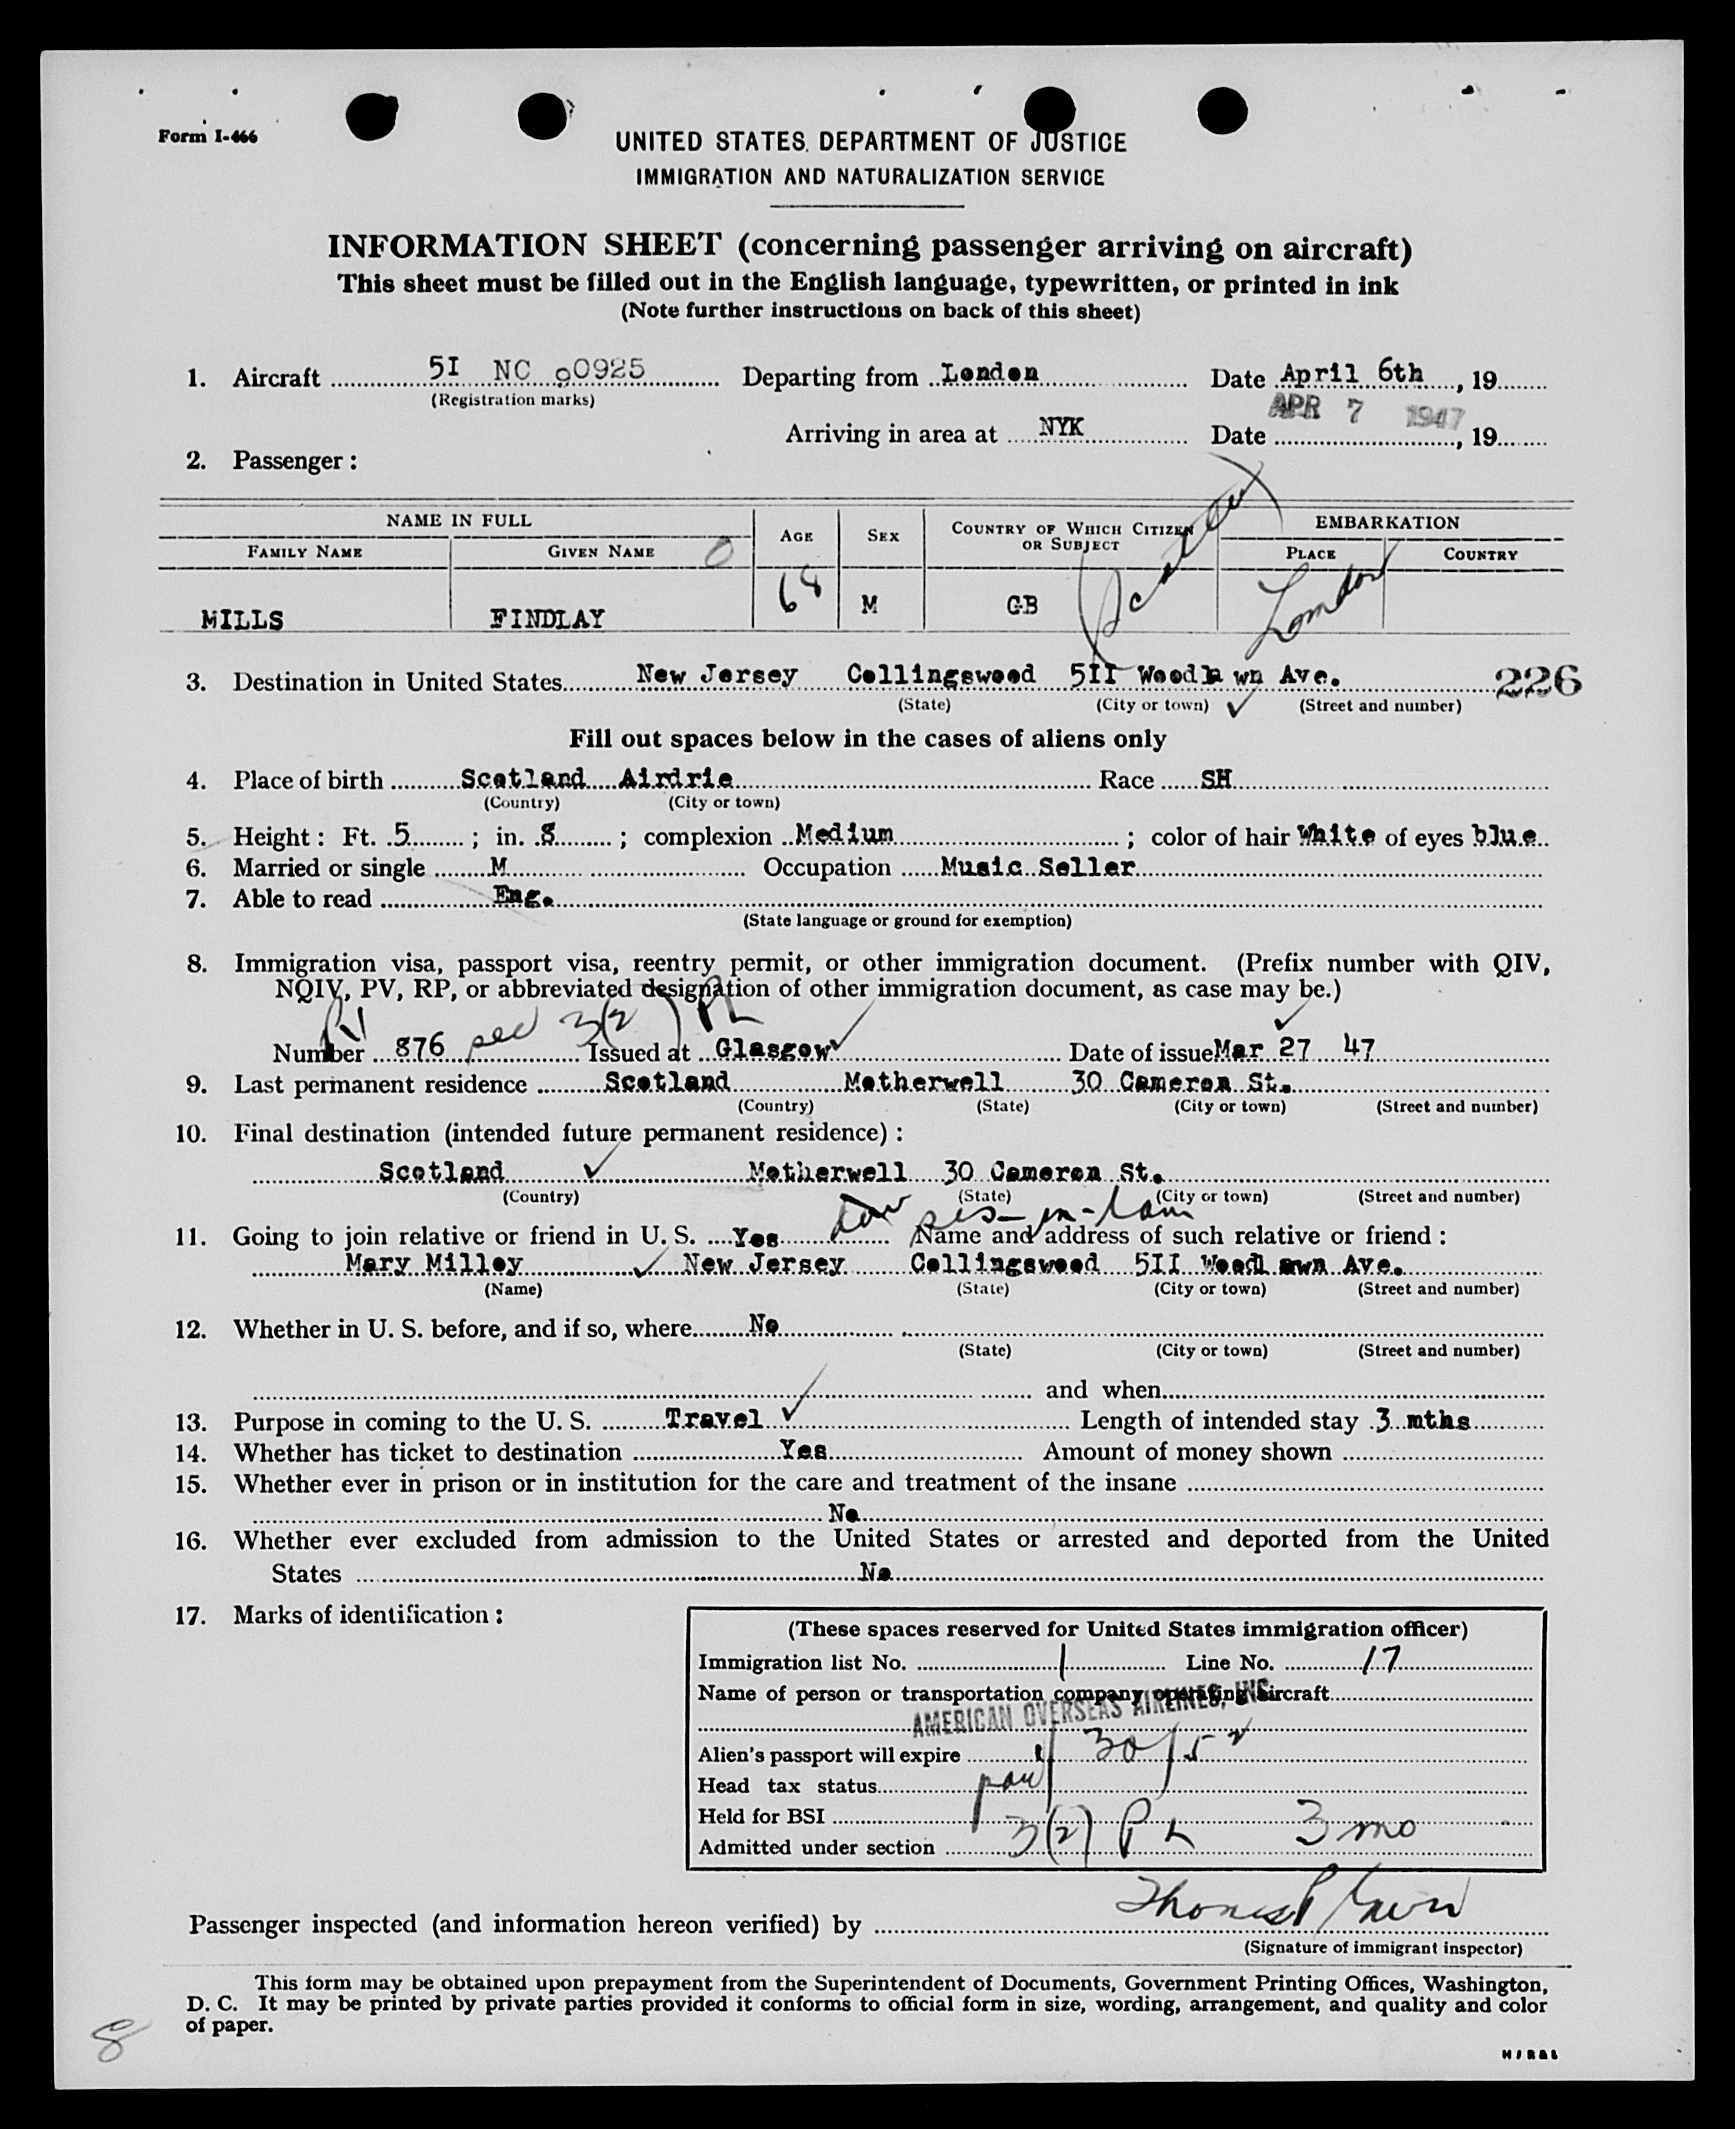 Form I-466
UNITED STATES DEPARTMENT OF JUSTICE
IMMIGRATION AND NATURALIZATION SERVICE
INFORMATION SHEET (concerning passenger arriving on aircraft)
This sheet must be filled out in the English language, typewritten, or printed in ink
(Note further instructions on back of this sheet)
1. Aircraft 5I NC 90925 Departing from London Date April 6th, 19
(Registration marks)
APR 7 1947
Arriving in area at NYK Date , 19
2. Passenger:
NAME IN FULL AGE SEX COUNTRY OF WHICH CITIZEN OR SUBJECT EMBARKATION
FAMILY NAME GIVEN NAME PLACE COUNTRY
MILLS FINDLAY 68 M GB London
3. Destination in United States New Jersey Collingswood 5II Woodlawn Ave. 226
(State) (City or town) (Street and number)
Fill out spaces below in the cases of aliens only
4. Place of birth Scotland Airdrie Race SH
(Country) (City or town)
5. Height: Ft. 5 ; in. 8 ; complexion Medium ; color of hair White of eyes blue
6. Married or single M Occupation Music Seller
7. Able to read Eng.
(State language or ground for exemption)
8. Immigration visa, passport visa, reentry permit, or other immigration document. (Prefix number with QIV,
NQIV, PV, RP, or abbreviated designation of other immigration document, as case may be.)
PV sec 3(2) PL
Number 876 Issued at Glasgow Date of issue Mar 27 47
9. Last permanent residence Scotland Motherwell 30 Cameron St.
(Country) (State) (City or town) (Street and number)
10. Final destination (intended future permanent residence):
Scotland Motherwell 30 Cameron St.
(Country) (State) (City or town) (Street and number)
sis-in-law
11. Going to join relative or friend in U. S. Yes Name and address of such relative or friend:
Mary Milley New Jersey Collingswood 5II Woodlawn Ave.
(Name) (State) (City or town) (Street and number)
12. Whether in U. S. before, and if so, where No
(State) (City or town) (Street and number)
and when
13. Purpose in coming to the U. S. Travel Length of intended stay 3 mths
14. Whether has ticket to destination Yes Amount of money shown
15. Whether ever in prison or in institution for the care and treatment of the insane
No
16. Whether ever excluded from admission to the United States or arrested and deported from the United
States No
17. Marks of identification:
(These spaces reserved for United States immigration officer)
Immigration list No. 1 Line No. 17
Name of person or transportation company operating aircraft
AMERICAN OVERSEAS AIRLINES, INC.
Alien's passport will expire 1/30/52
Head tax status paid
Held for BSI
Admitted under section 3(2) PL 3 mo
Passenger inspected (and information hereon verified) by Thomas P
(Signature of immigrant inspector)
This form may be obtained upon prepayment from the Superintendent of Documents, Government Printing Offices, Washington,
D. C. It may be printed by private parties provided it conforms to official form in size, wording, arrangement, and quality and color
of paper.
8